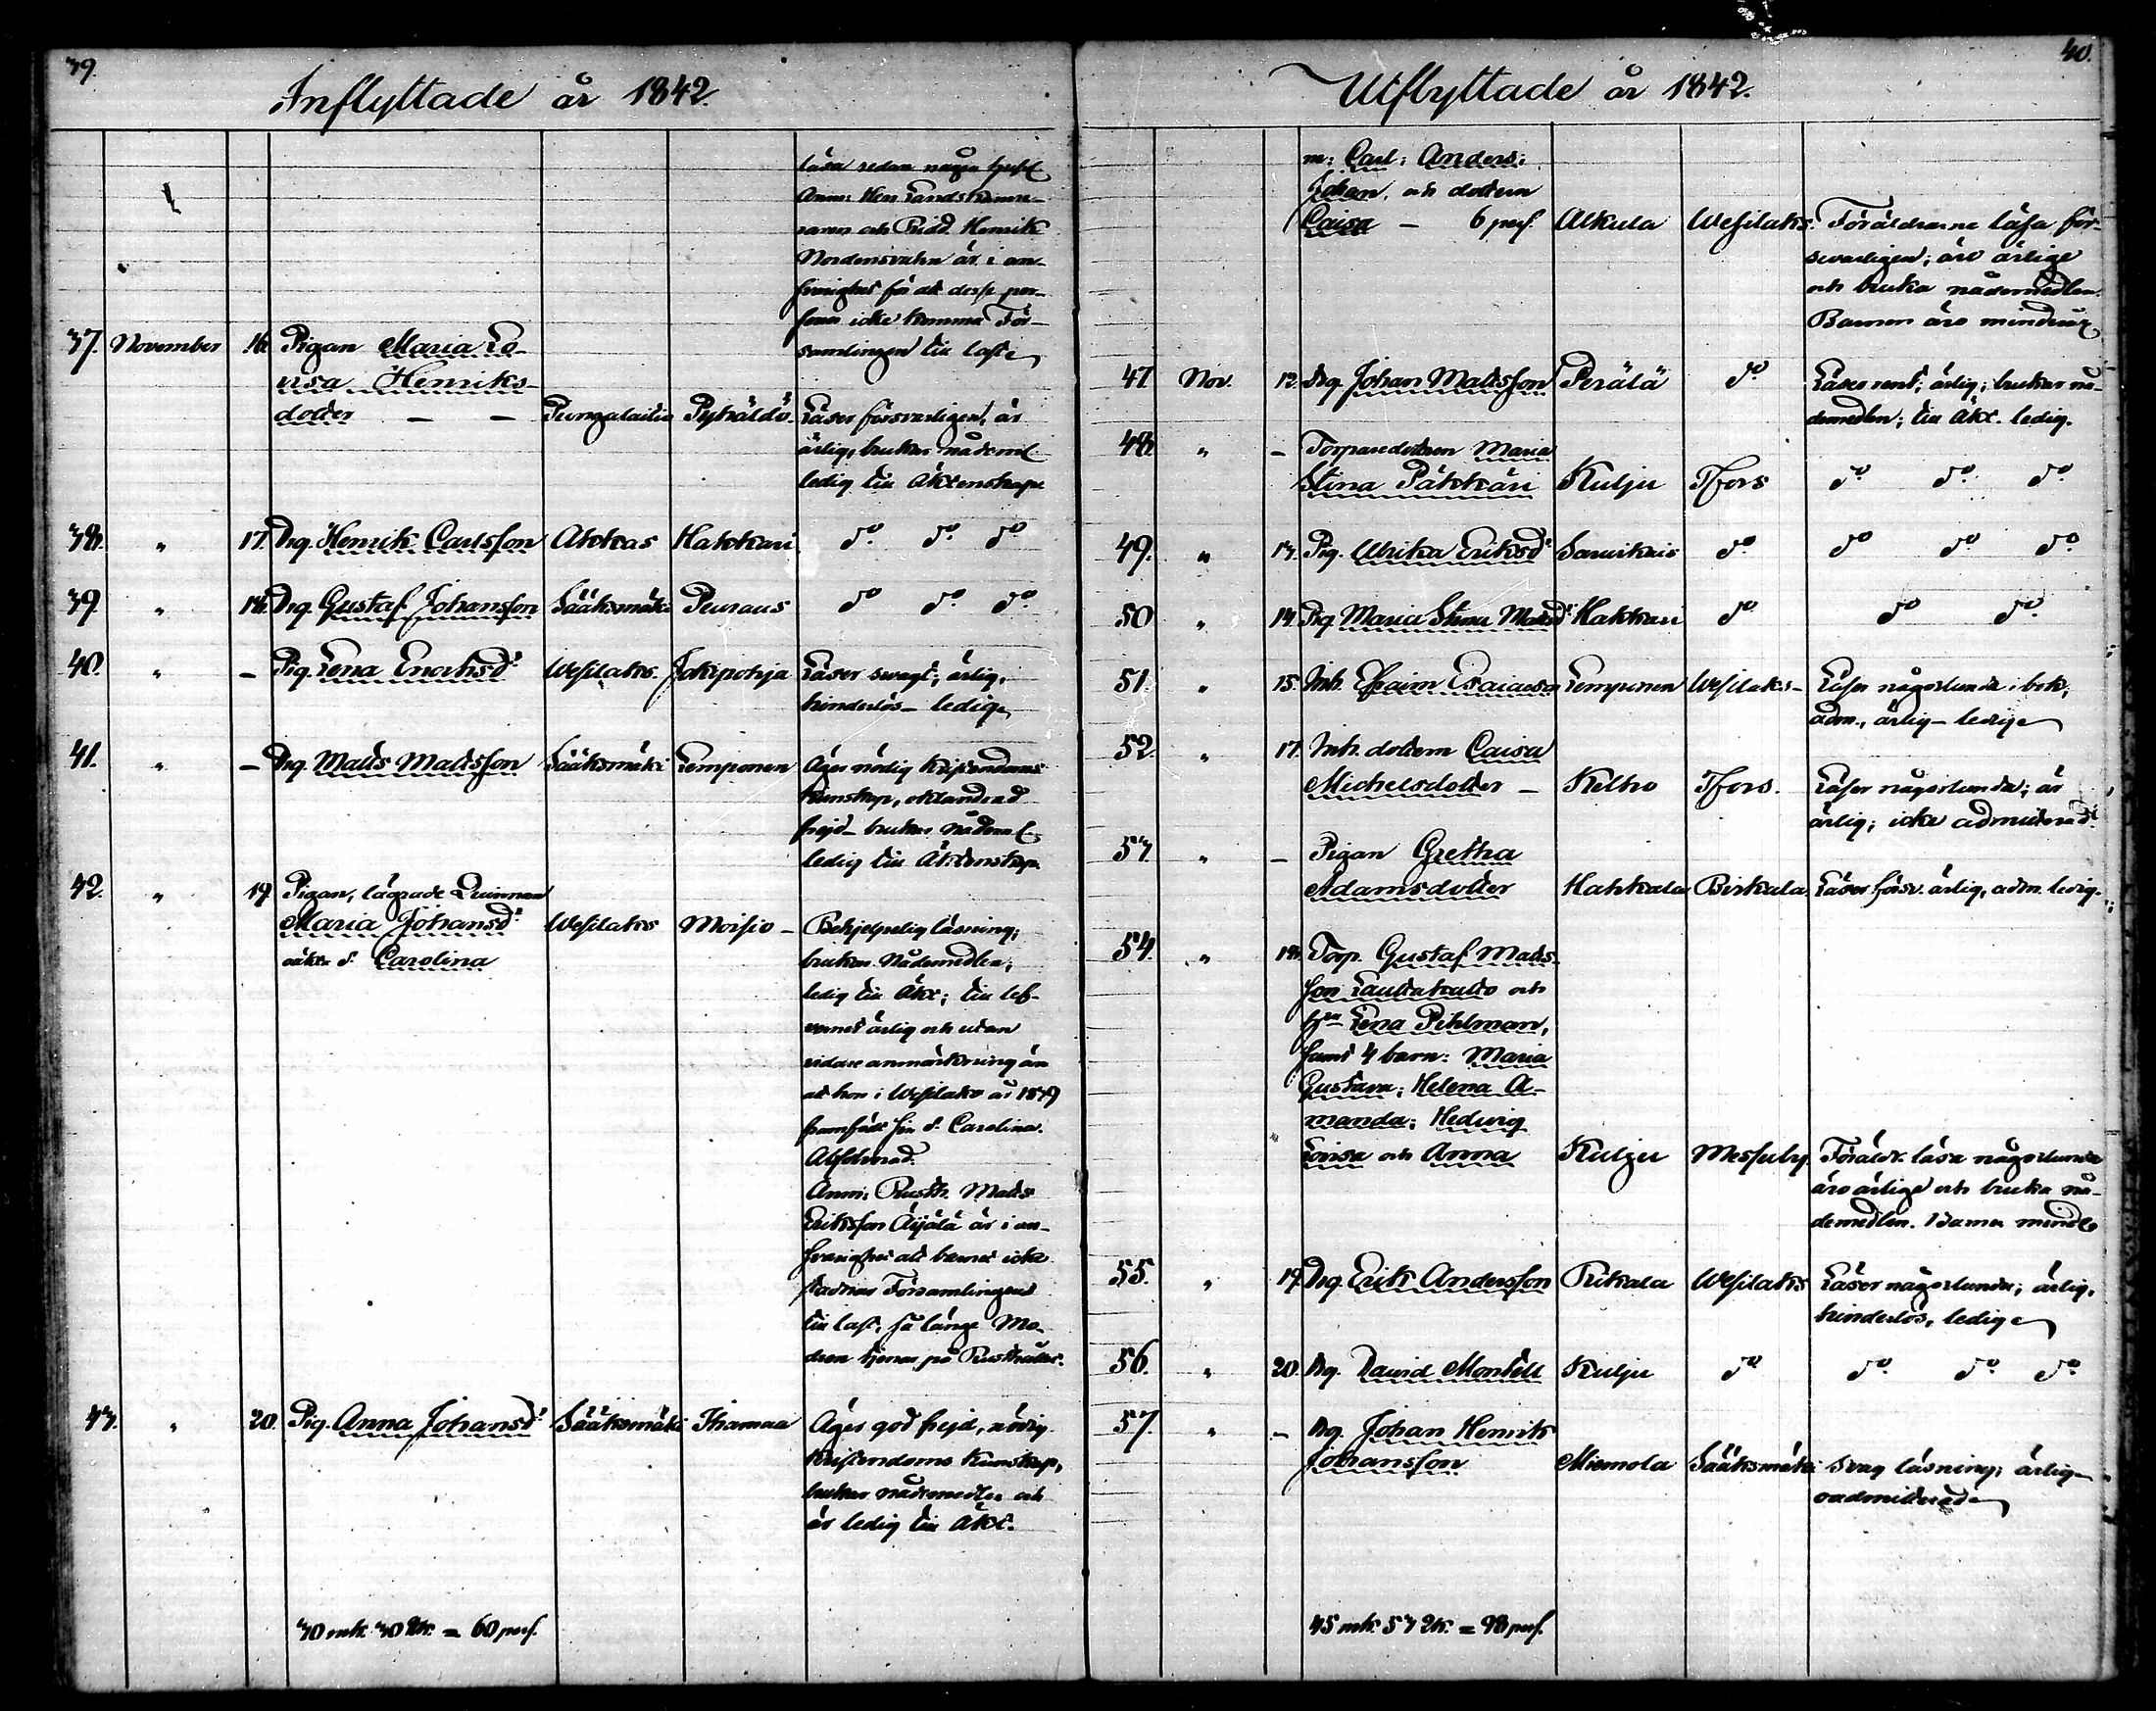 39.
Inflyttade år 1842.
läsa sedan någon
Anm: Herr Landskamre-
raren och Ridd. Henrik
Nordensvahn är i an-
svarighet för att desse per-
soner icke komma För-
samlingen till last
37. November 16. Pigan Maria Lo-
visa Henriks-
dotter — — Pungalaitio Pyhäldö. Läser försvarligen, är
ärlig, brukar nådeml.
ledig till Äktenskap
38. " 17. Drg. Henrik Carlsson Akkas Hakkari do do do
39 " 18. Drg. Gustaf Johansson Sääksmäki Peuraus do do do
40. " — Pig. Lena Enochsdr Wesilaks. Jokipohja Läser swagt, ärlig,
hinderlös — ledig
41. " — Drg. Matts Mattsson Sääksmäki Lemponen Äger nödig Kristendoms
Kunskap, oklandrad
frejd — brukar Nådeml.
ledig till Äktenskap
42. " 19 Pigan, lägrade Quinnan
Maria Johansdr Wesilaks Moisio — Behjelpelig läsning;
oäkta d. Carolina brukar Nådemedlen;
ledig till Äkt; till lef-
vernet ärlig och utan
vidare anmärkning än
att hon i Wesilaks år 1839
framfödt sin d. Carolina.
Absolverad.
Anm: Rusth. Matts
Eriksson Äijälä är i an-
svarighet att barnet icke
Församlingen
till last, så länge Mo-
dren tjenar på Rusthållet.
43. " 20. Pig. Anna Johansdr Sääksmäki Thamaa Äger god frejd, nödig
Kristendoms Kunskap,
brukar nådemedlen och
är ledig till Äkt.
30 mk. 30 Qk. = 60 pers.
40.
Utflyttade år 1842.
m: Carl; Anders;
Johan, och dottern
Caisa — 6 pers. Alkula Wesilaks. Föräldrarne läsa för-
svarligen; äro ärlige
och bruka nådemedlen.
Barnen äro minderårig
47 Nov. 12. Drg. Johan Mattsson Perälä do Läser rent; ärlig; brukar nå-
demedlen; till Äkt. ledig.
48 " — Torparedottren Maria
Stina Päkkäri Kulju Tfors do do do
49. " 13. Pig. Ulrika Eriksdr Sarvikais do do do do
50 " 14. Pig Maria Stina Mattsdr Hakkari do do do
51. " 15. Inh. Efraim Esaiasson Lemponen Wesilaks — Läser någorlunda i bok,
adm., ärlig — ledig
52. " 17. Inh. dottern Caisa
Michelsdotter — Kelho Tfors. Läser någorlunda; är
ärlig; icke admitterad.
53 " — Pigan Gretha
Adamsdotter Hahkala Birkala. Läser försv. ärlig, adm. ledig.
54. " 18. Torp. Gustaf Matts-
son Laultakulto och
Lena Pihlman,
samt 4 barn: Maria
Gustava; Helena A-
manda; Hedwig
Lovisa och Anna Kulju Messuby. Föräldr. läsa någorlunda
äro ärlige och bruka nå-
demedlen. Barnen
55. " 19. Drg. Erik Andersson Rikala Wesilaks Läser någorlunda; ärlig,
hinderlös, ledig
56. " 20. Drg. David Montell Kulju do do do do
57. " — Drg. Johan Henrik
Johansson Miemola Sääksmäki Svag läsning; ärlig —
oadmitterad
45 mk. 53 Qk. = 98 pers.